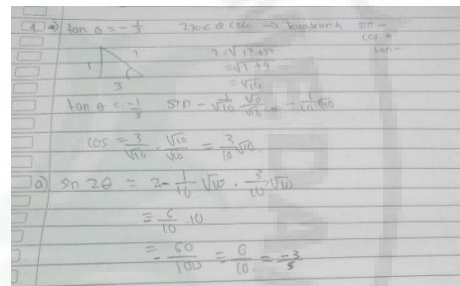 4. a) tan θ = -1/3 270 < θ < 360 → sin -
cos +
tan -
1 ?
3
? = √
= √1+9
= √10
tan θ = -1/3 sin - 1/√10 · √10/√10 = -1/10 √10
cos = 3/√10 · √10/√10 = 3/10 √10.
a) sin 2θ = 2 - 1/10 √10 · 3/10 √10
= 6/10 · 10
= - 60/100 = 6/10 = -3/5